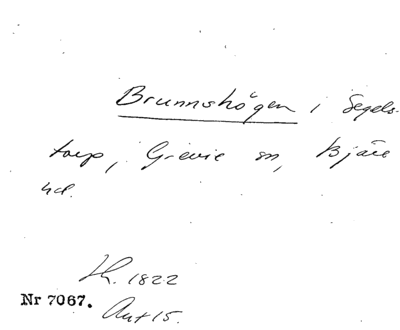 Brunnshögen i Segels-
torp, Grevie sn, Bjäre
hd.
Lh. 1822
Nr 7067.
Ant 15.